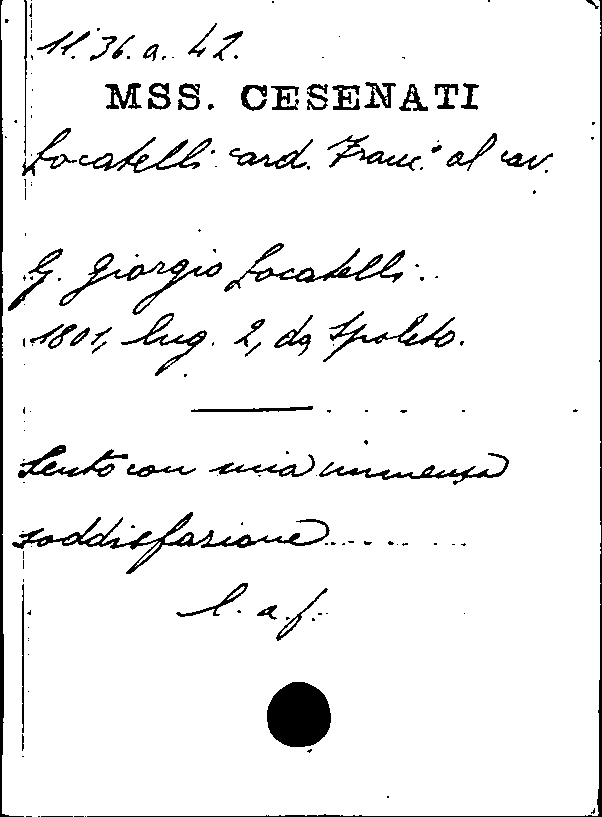 11. 36. a. 42.
MSS. CESENATI
Locatelli card. Franc° al cav.
G. Giorgio Locatelli.
1801, lug. 2, da Spoleto.
Sento con mia immensa
soddisfazione......
l. a. f.